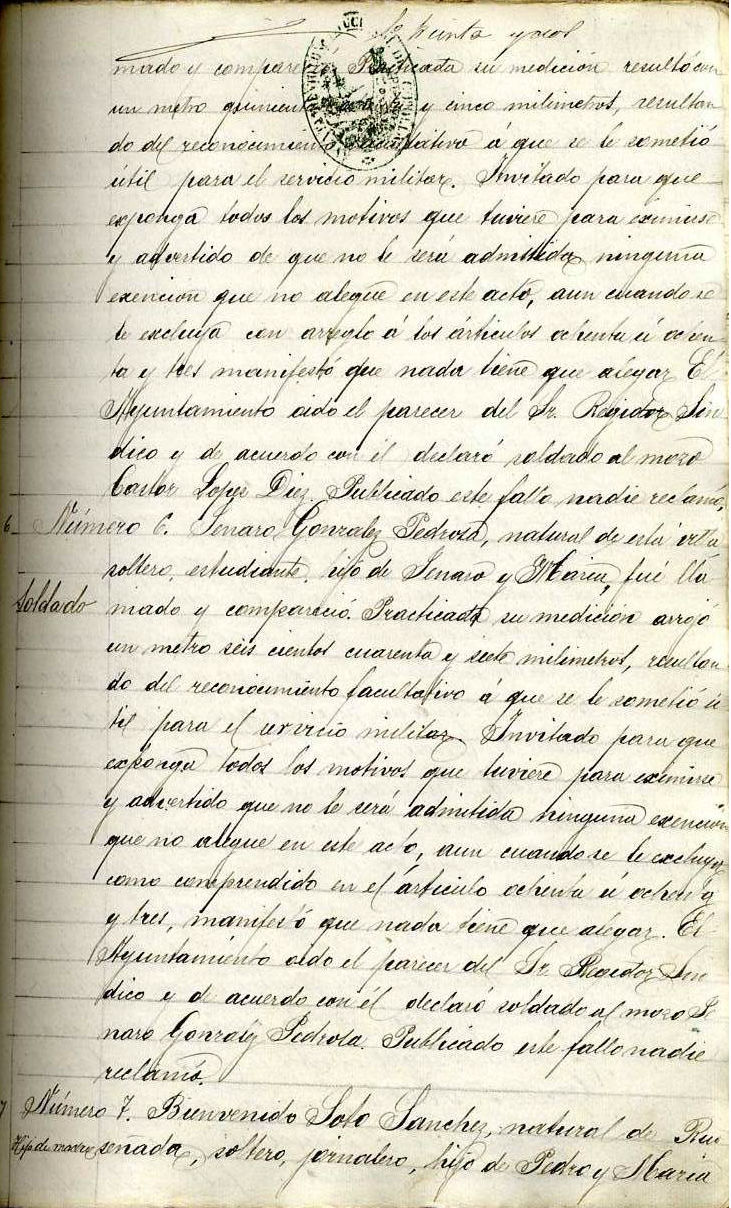 treinta y dos
mado y compareció. Practicada su medición resultó con
un metro quinientos y cinco milimetros, resultan
do del reconocimiento facultativo á que se le sometió
útil para el servicio militar. Invitado para que
exponga todos los motivos que tuviere para eximirse
y advertido de que no le será admitida ninguna
exencion que no alegue en este acto, aun cuando se
le excluya con arreglo á los artículos ochenta ú ochen
ta y tres manifestó que nada tiene que alegar. El
Ayuntamiento oido el parecer del Sr. Regidor Sín
dico y de acuerdo con él declaró soldado al mozo
Castor Lopez Diez. Publicado este fallo nadie reclamó.
6 Número 6. Genaro Gonzalez Pedrosa, natural de esta villa
soltero, estudiante, hijo de Genaro y Maria, fué lla
Soldado mado y compareció. Practicada su medición arrojó
un metro seis cientos cuarenta y siete milimetros, resultan
do del reconocimiento facultativo á que se le sometió ú
til para el servicio militar. Invitado para que
exponga todos los motivos que tuviere para eximirse
y advertido que no le será admitida ninguna exencion
que no alegue en este acto, aun cuando se le excluya
como comprendido en el artículo ochenta ú ochenta
y tres, manifestó que nada tiene que alegar. El
Ayuntamiento oido el parecer del Sr. Regidor Sín
dico y de acuerdo con él declaró soldado al mozo Ge
naro Gonzalez Pedrosa. Publicado este fallo nadie
reclamó.
7 Número 7. Bienvenido Soto Sanchez, natural de Rui
Hijo de madre señada, soltero, jornalero, hijo de Pedro y Maria